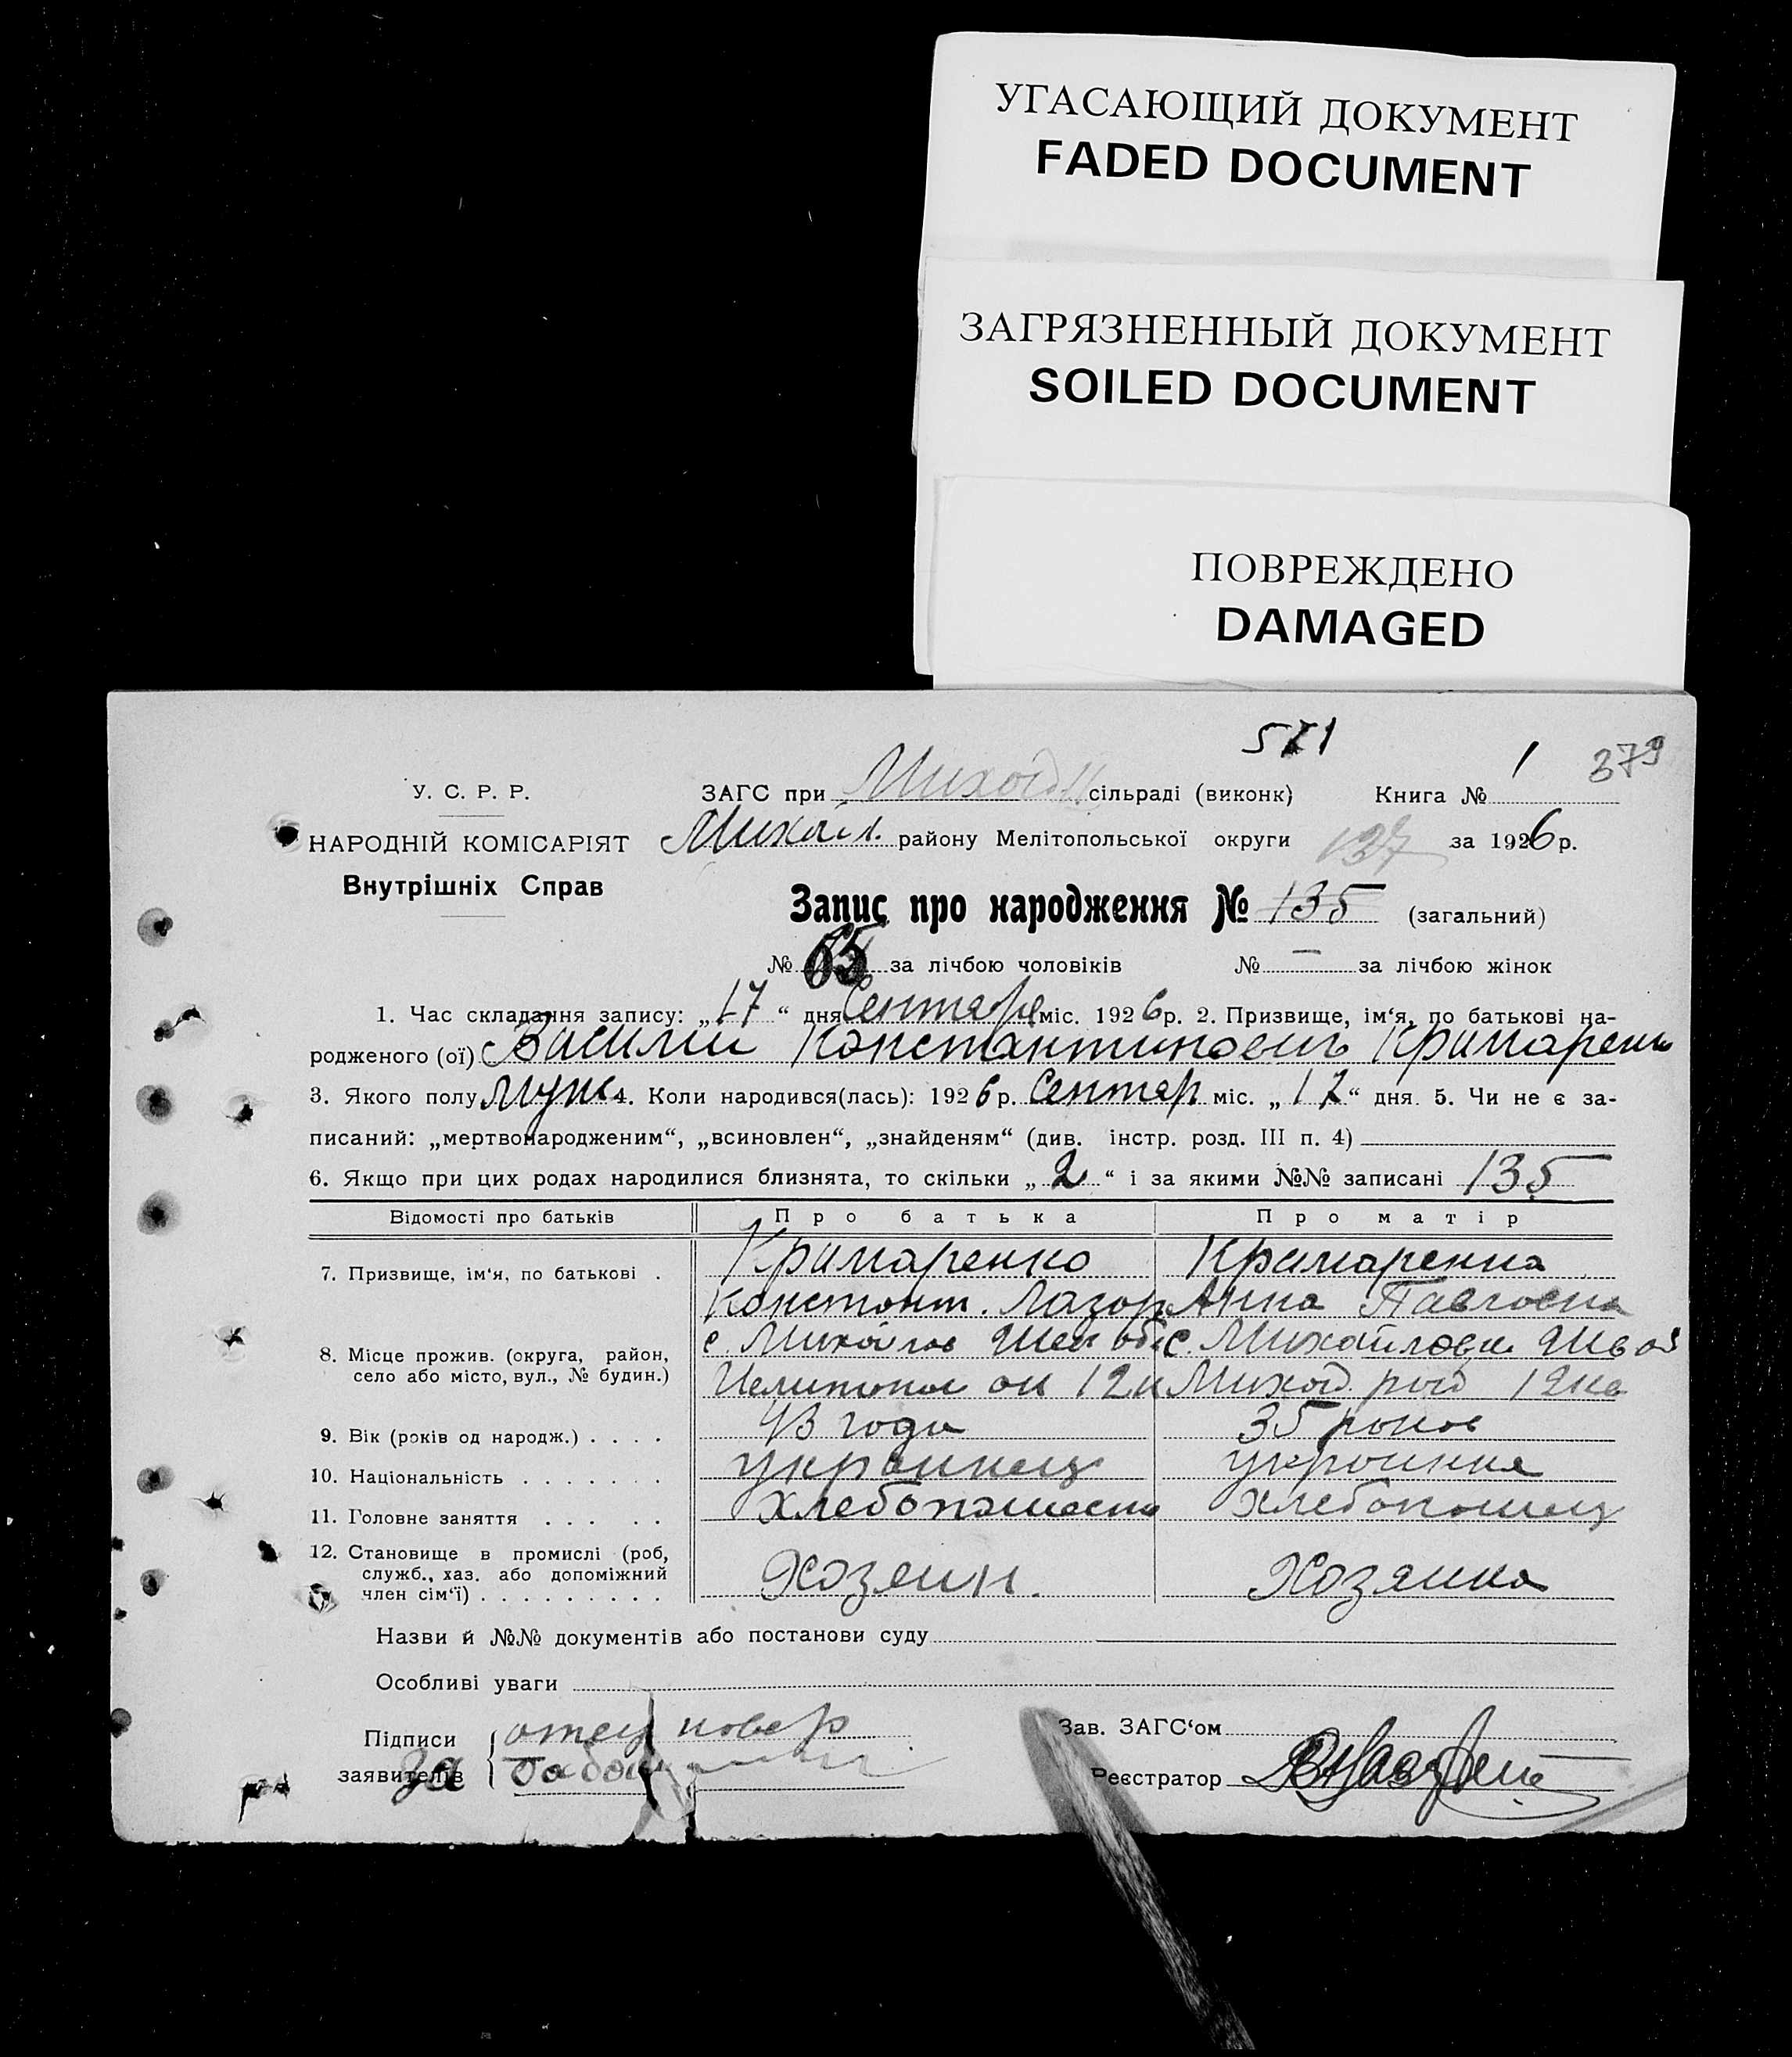 УГАСАЮЩИЙ ДОКУМЕНТ
FADED DOCUMENT
ЗАГРЯЗНЕННЫЙ ДОКУМЕНТ
SOILED DOCUMENT
ПОВРЕЖДЕНО
DAMAGED
379
У. С. Р. Р.
ЗАГС при сільраді (виконк) Книга № 1
НАРОДНІЙ КОМІСАРІЯТ
Михайл. району Мелітопольської округи 137 за 1926 р.
Внутрішніх Справ
Запис про народження № 135 (загальний)
№ 65 за лічбою чоловіків № — за лічбою жінок
1. Час складання запису: „17“ дня Сентября міс. 1926 р. 2. Призвище, ім‘я, по батькові на-
родженого (ої) Василий Константинович Кримаренко
3. Якого полу муж 4. Коли народився(лась): 1926 р. Сентяр міс. „12“ дня. 5. Чи не є за-
писаний: „мертвонародженим“, „всиновлен“, „знайденям“ (див. інстр. розд. III п. 4)
6. Якщо при цих родах народилися близнята, то скільки „2“ і за якими №№ записані 135
Відомості про батьків Про батька Про матір
7. Призвище, ім‘я, по батькові . Кримаренко Кримаренка
Констант. Лазор Анна Павловна
8. Місце прожив. (округа, район, с. Михайлов с. Михайловка
село або місто, вул., № будин.)
9. Вік (років од народж.) . . . . 43 года 35 роков
10. Національність . . . . . . . украинец украинка
11. Головне заняття . . . . . хлебопашество хлебопашец
12. Становище в промислі (роб,
служб., хаз. або допоміжний Хозеин. Хозяика
член сім‘ї) . . . . . . . . .
Назви й №№ документів або постанови суду
Особливі уваги
Підписи отец Зав. ЗАГС‘ом
заявителів за Реєстратор